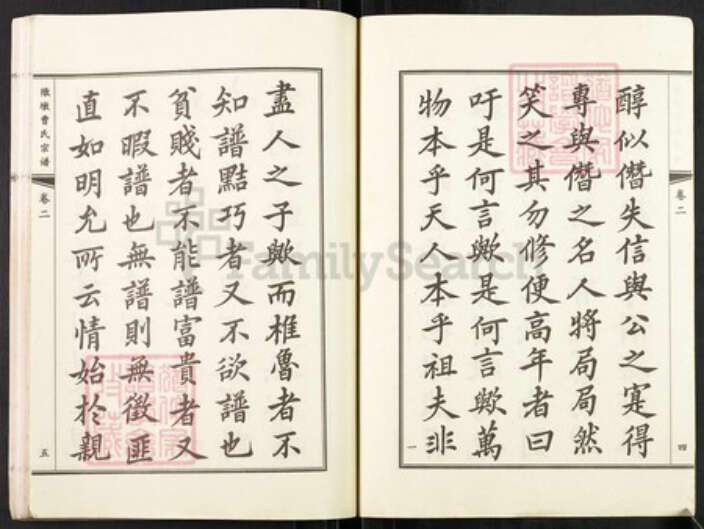 醇似僭失信與公之寔得
專與僭之名人將局局然
笑之其勿修便高年者曰
吁是何言歟是何言歟萬
物本乎天人本乎祖夫非
卷二
四
盡人之子歟而椎魯者不
知譜黠巧者又不欲譜也
貧賤者不能譜富貴者又
不暇譜也無譜則無徵匪
直如明允所云情始於親
墩曹氏宗谱
卷二
五
FamilySearch